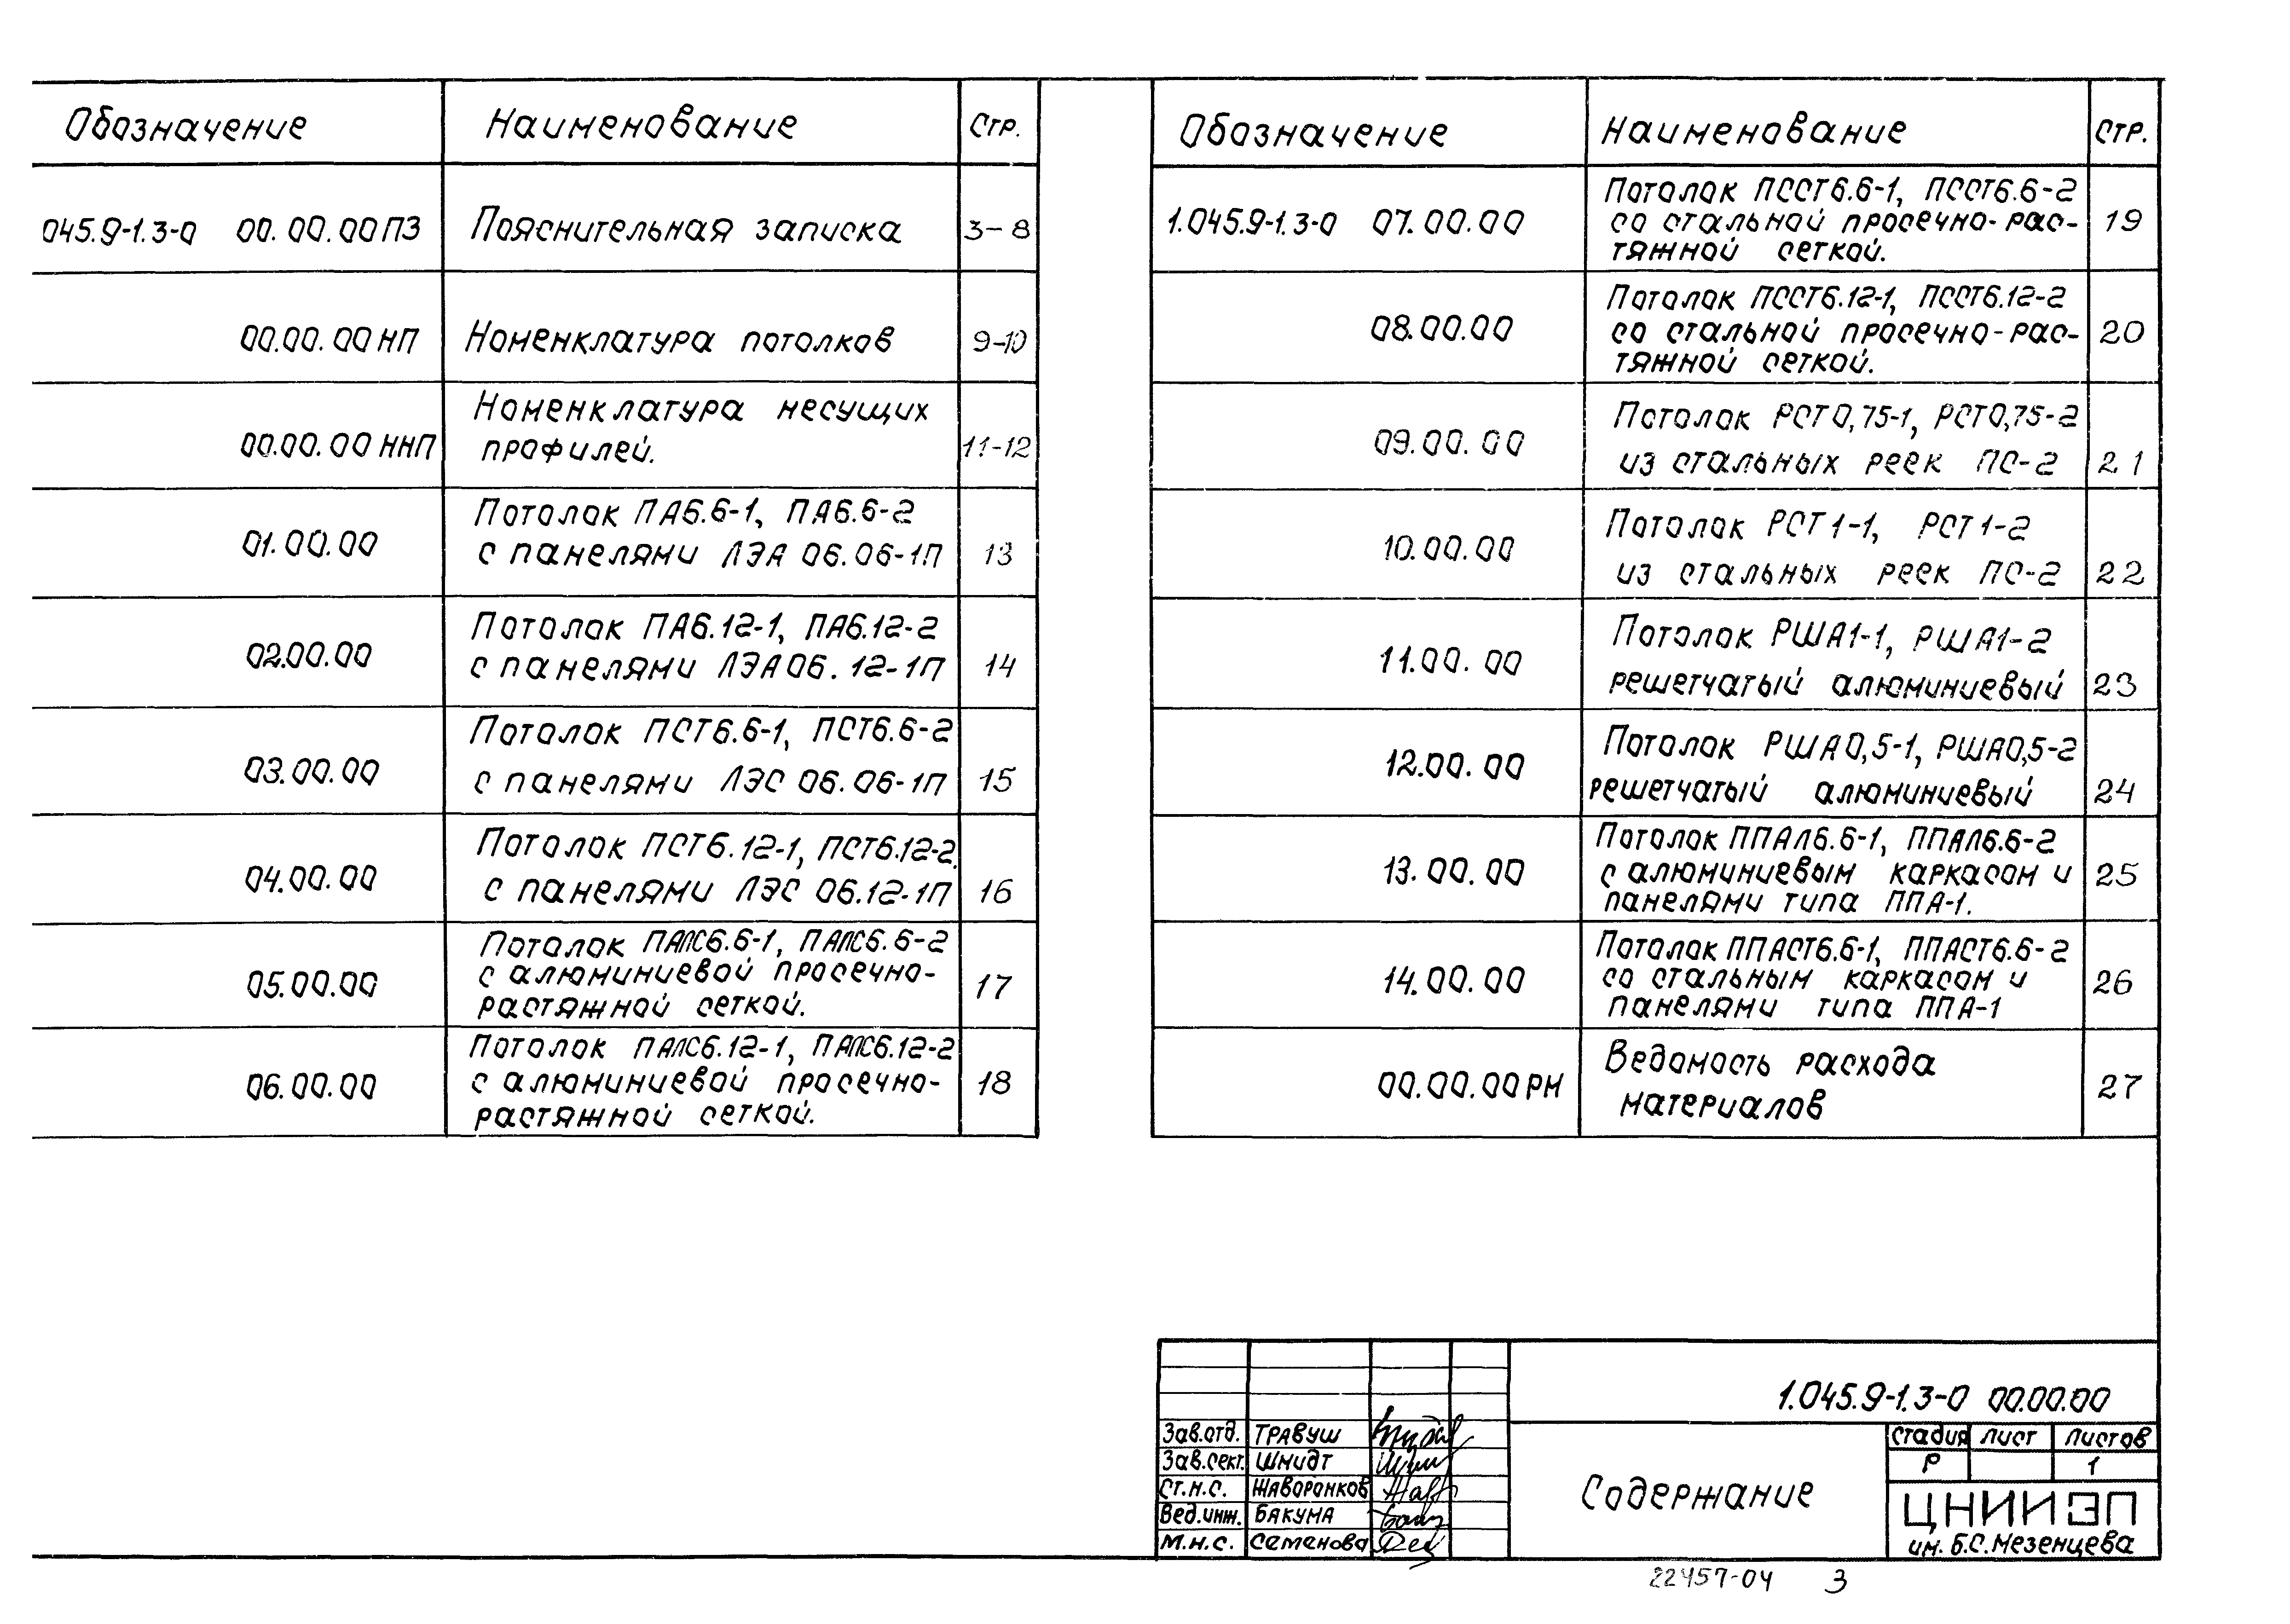 Обозначение Наименование Стр.
045.9-1.3-0 00.00.00ПЗ Пояснительная записка 3-8
00.00.00НП Номенклатура потолков 9-10
00.00.00ННП Номенклатура несущих
профилей. 11-12
01.00.00 Потолок ПА6.6-1, ПА6.6-2
с панелями ЛЭА 06.06-1П 13
02.00.00 Потолок ПА6.12-1, ПА6.12-2
с панелями ЛЭА06.12-1П 14
03.00.00 Потолок ПСТ6.6-1, ПСТ6.6-2
с панелями ЛЭС 06.06-1П 15
04.00.00 Потолок ПСТ6.12-1, ПСТ6.12-2.
с панелями ЛЭС 06.12-1П 16
05.00.00 Потолок ПАПС6.6-1, ПАПС6.6-2
с алюминиевой просечно-
растяжной сеткой. 17
06.00.00 Потолок ПАПС6.12-1, ПАПС6.12-2
с алюминиевой просечно-
растяжной сеткой. 18
Обозначение Наименование Стр.
1.045.9-1.3-0 07.00.00 Потолок ПССТ6.6-1, ПССТ6.6-2
со стальной просечно-рас-
тяжной сеткой. 19
08.00.00 Потолок ПССТ6.12-1, ПССТ6.12-2
со стальной просечно-рас-
тяжной сеткой. 20
09.00.00 Потолок РСТ0,75-1, РСТ0,75-2
из стальных реек ПС-2 21
10.00.00 Потолок РСТ1-1, РСТ1-2
из стальных реек ПС-2 22
11.00.00 Потолок РША1-1, РША1-2
решетчатый алюминиевый 23
12.00.00 Потолок РША0,5-1, РША0,5-2
решетчатый алюминиевый 24
13.00.00 Потолок ППАЛ6.6-1, ППАЛ6.6-2
с алюминиевым каркасом и
панелями типа ППА-1. 25
14.00.00 Потолок ППАСТ6.6-1, ППАСТ6.6-2
со стальным каркасом и
панелями типа ППА-1 26
00.00.00РМ Ведомость расхода
материалов 27
1.045.9-1.3-0 00.00.00
Зав.отд. Травуш
Зав.сект. Шмидт
Ст.н.с. Жаворонков
Вед.инж. Бакума
М.н.с. Семенова
Содержание
стадия лист листов
Р 1
ЦНИИЭП
им. Б.С.Мезенцева
22457-04 3